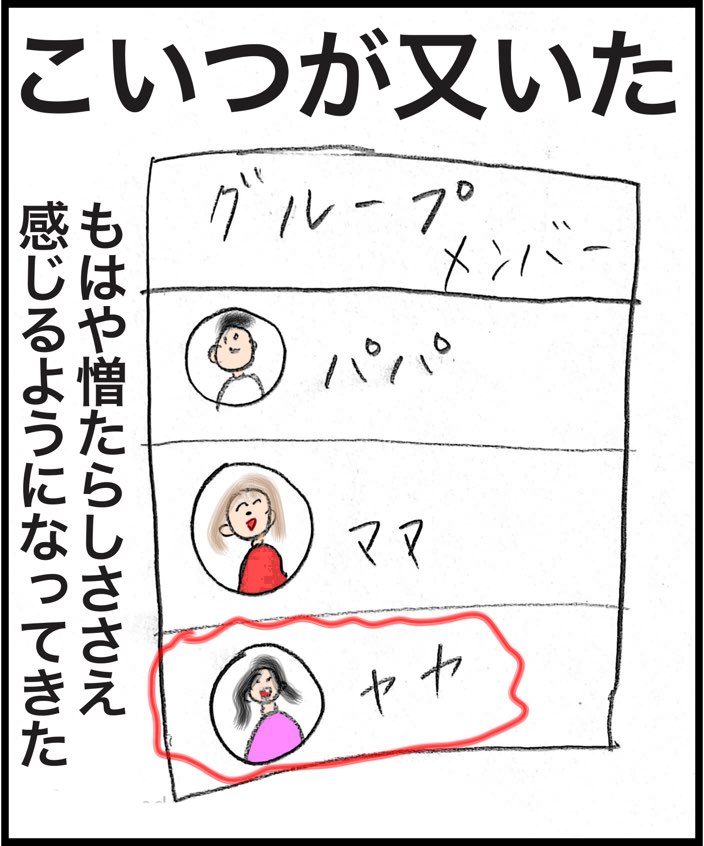 こいつが又いた
もはや憎たらしささえ
感じるようになってきた
グループ
メンバー
パパ
ママ
ヤヤ